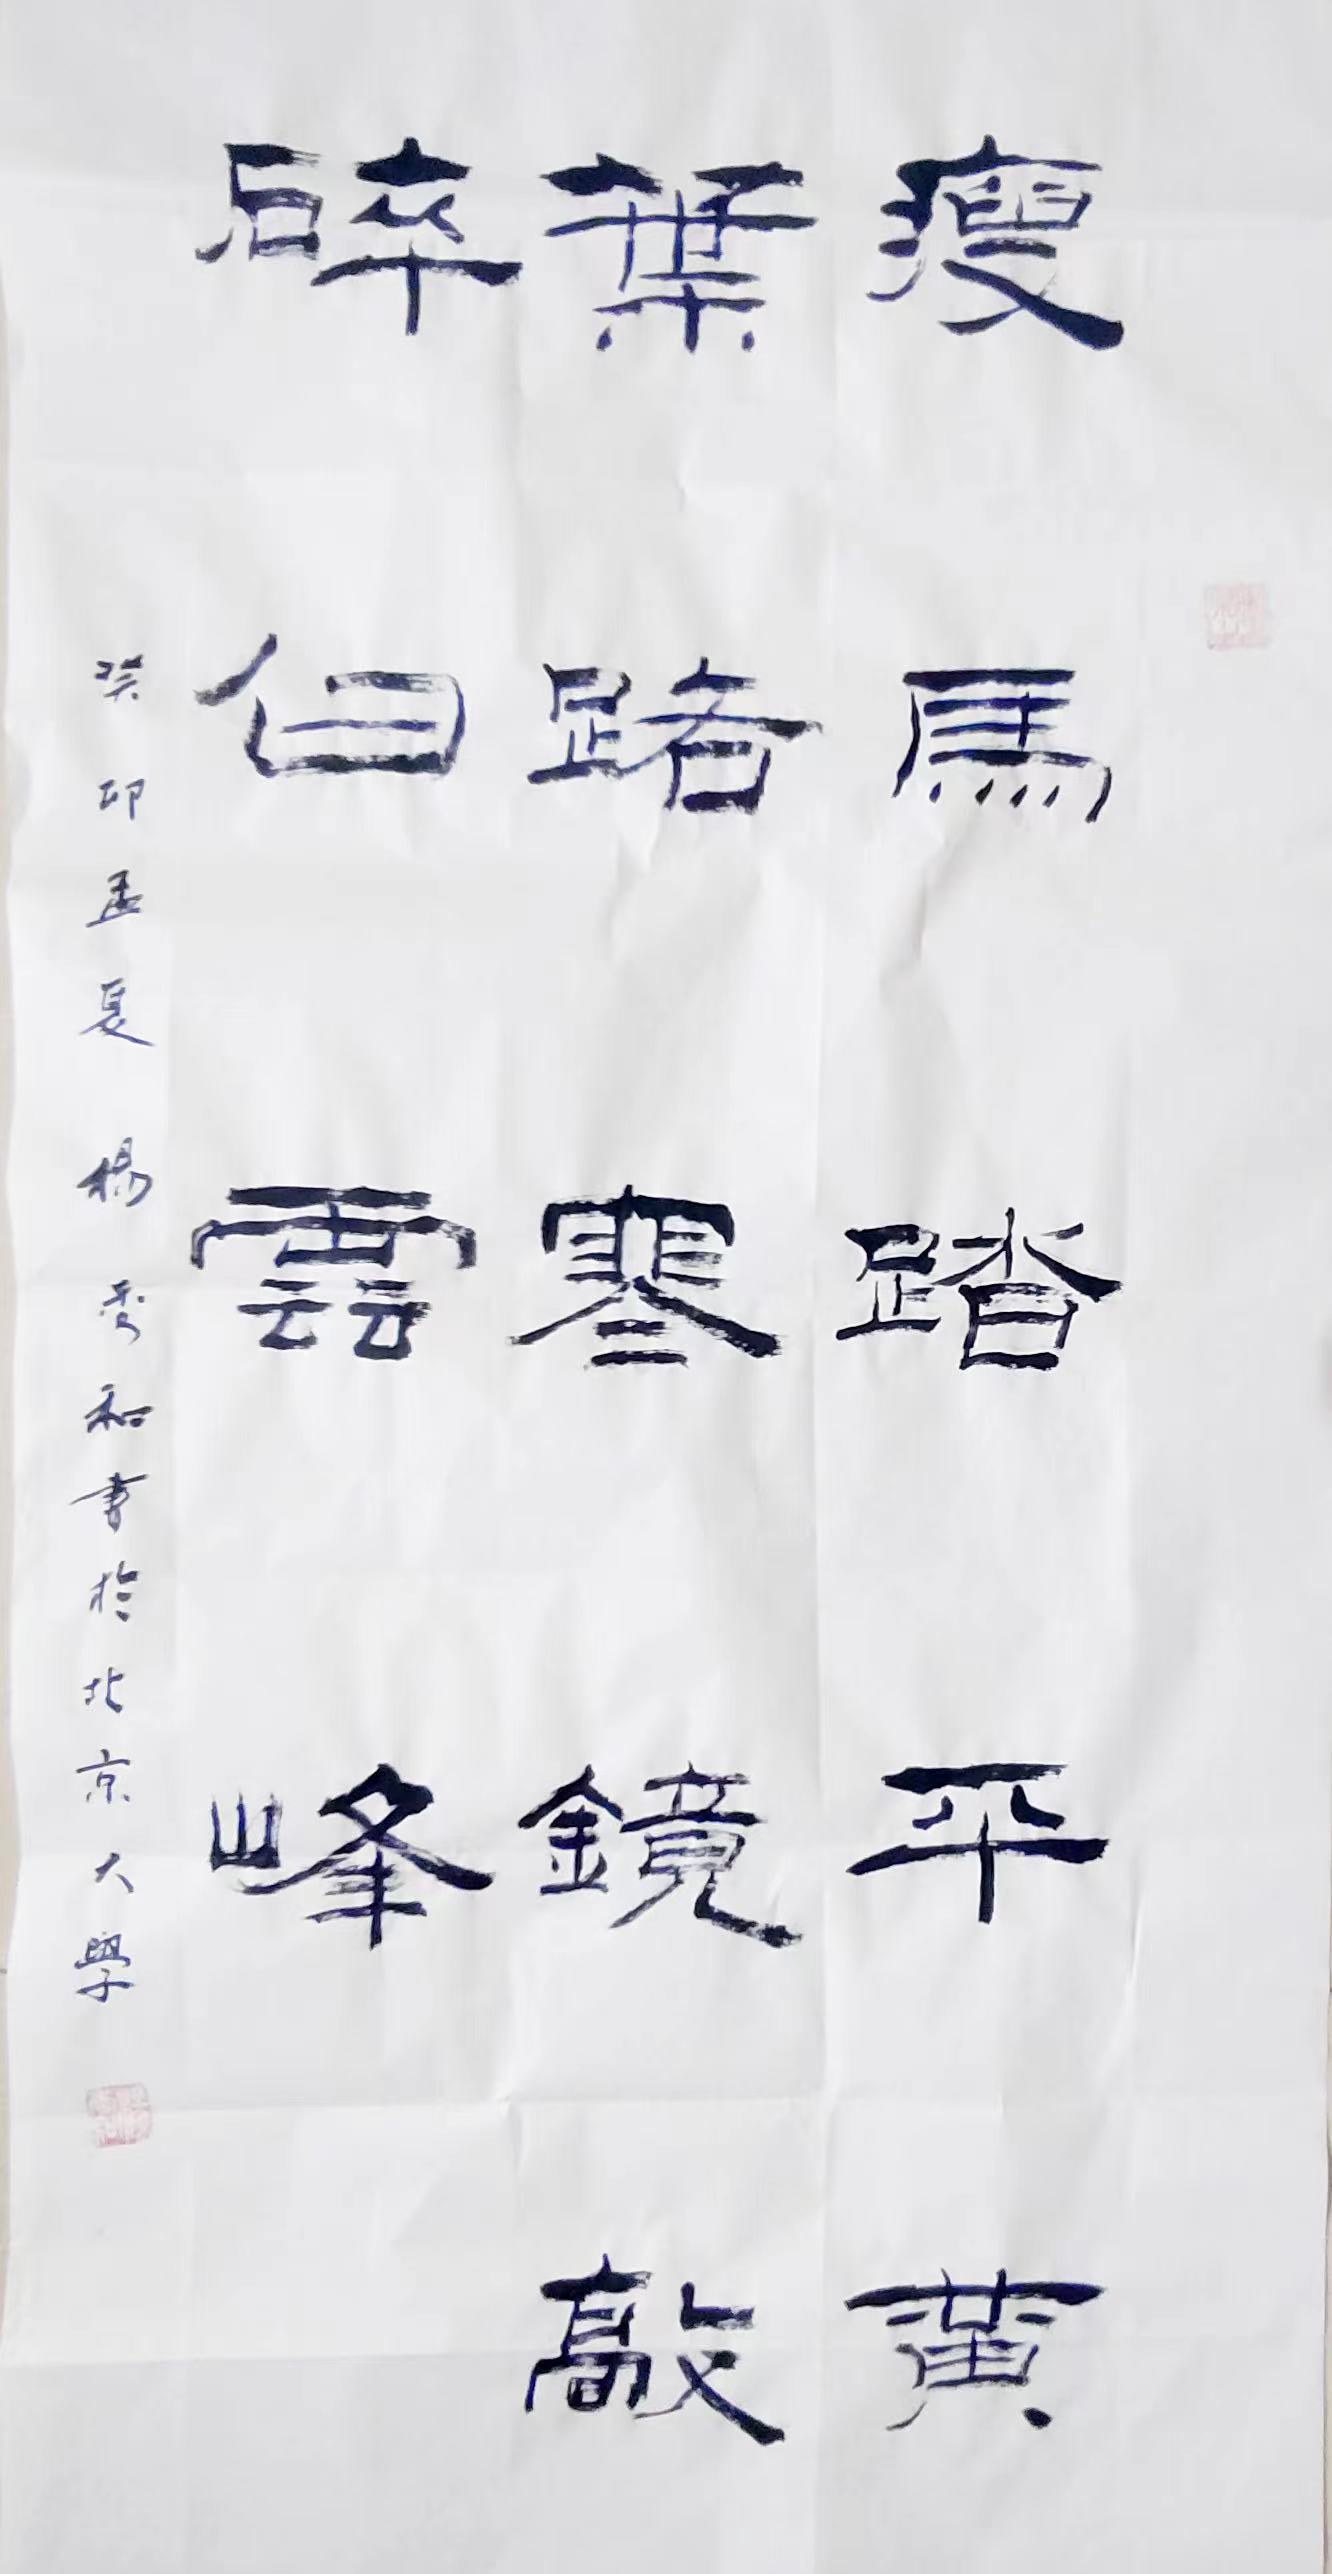 瘦馬踏平黃
葉路寒鏡敲
碎白雲峰
癸卯孟夏 楊秀和書於北京大學